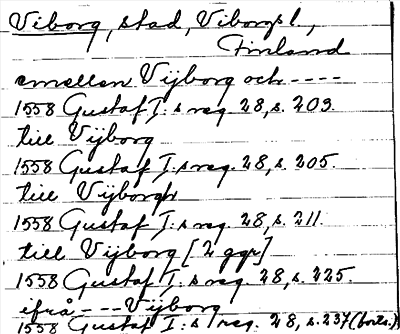 Viborg, stad, Viborgs l.,
Finland
emellan Vijborg och ----
1558 Gustaf I:s reg. 28, s. 203.
till Vijborg
1558 Gustaf I:s reg. 28, s. 205.
till Vijborgh
1558 Gustaf I:s reg. 28, s. 211.
till Vijborg [2 ggr]
1558 Gustaf I:s reg. 28, s. 225.
ifrå ---- Vijborg
1558 Gustaf I:s reg. 28, s. 237 (forts.)